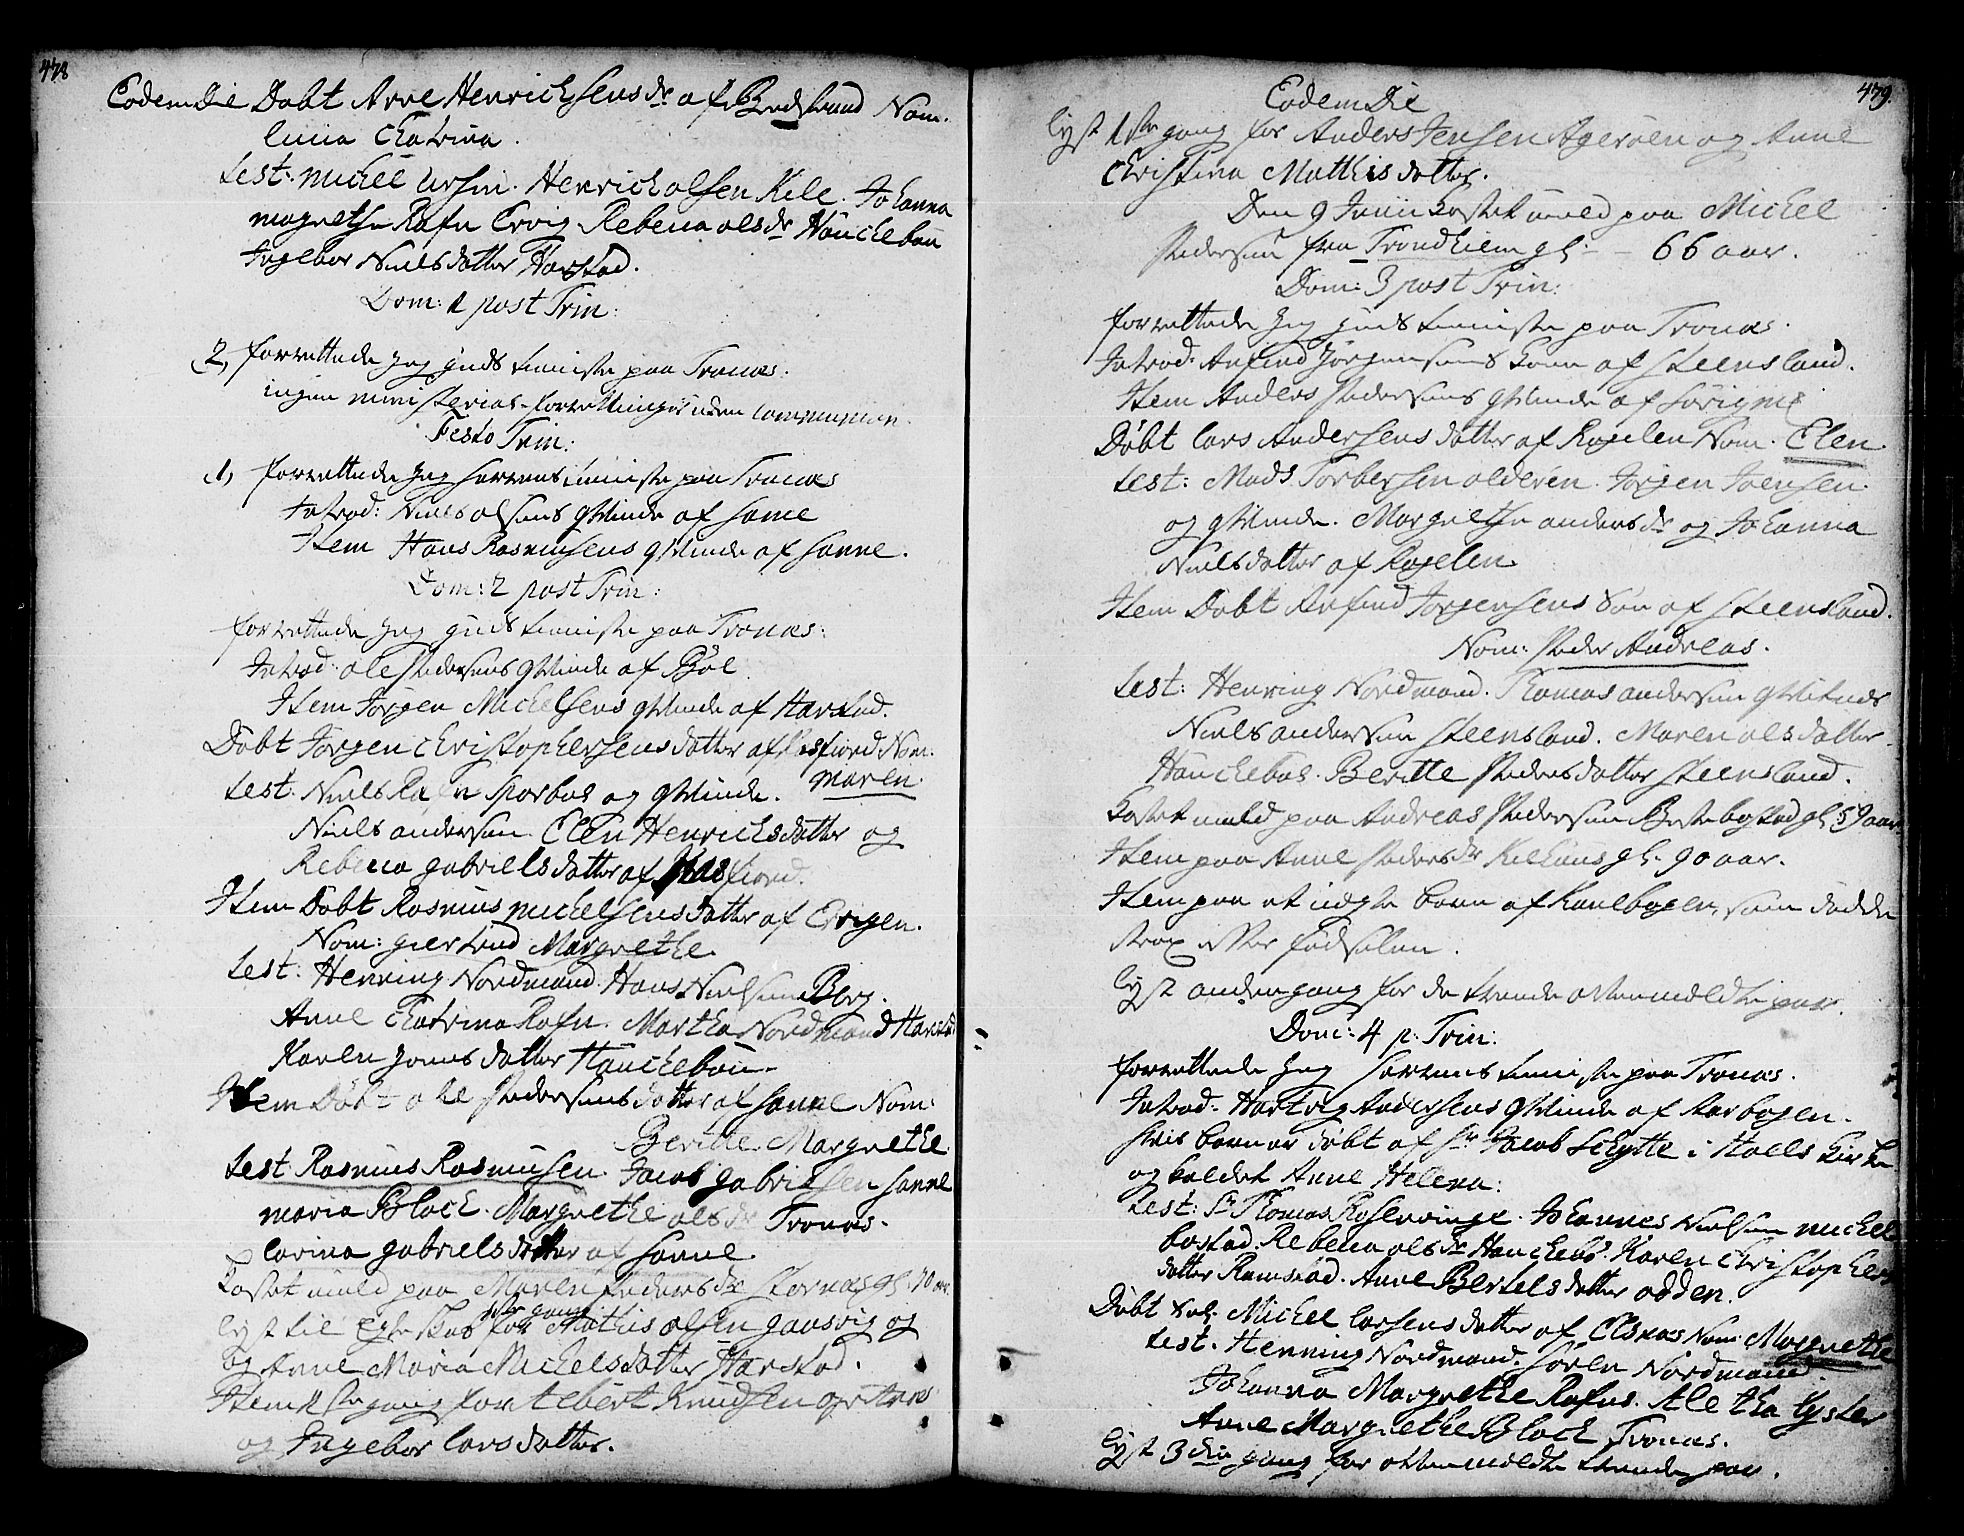 478
Eodem Die Døbt Arne Henrichsens dr af Nom.
Lucia Chatrina.
Test: Michel Ursin. Henrich Olsen Kile. Johanna
Magrethe Rafn Ervig Rebecca Olsdr Hauchebøu
Ingebor Nielsdatter Harstad.
Dom: 1 post Trin:
2, forrettede Jeg Guds tieniste paa Tronæs.
ingen ministerial-forretninger uden Communion.
Festo Trin:
1, forrettede Jeg Herrens tieniste paa Tronæs
Introd: Niels Olsens qvinde af Sanne
Item Hans Rasmusens qvinde af Sanne.
Dom: 2 post Trin:
forrettede Jeg Guds tieniste paa Tronæs:
Introd: Ole Pedersens qvinde af Bøl
Item Jørgen Michelsens qvinde af Harstad.
Døbt Jørgen Christophersens datter af Kasfiord Nom:
Maren
Test: Niels Rafn Sparboe og qvinde.
Niels Andersen. Elen Henrichsdatter og
Rebecca Gabriellsdatter af Kasfiord.
Item Døbt Rasmus Michelsens datter af Ervigen.
Nom: Giertrud Margrethe
Test: Henning Nordmand. Hans Nielsen Berg.
Anne Chatrina Rafn. Martha Nordmand Harstad
Karen Jonsdatter Hauchebøu.
Item Døbt Ole Pedersens datter af Sanne Nom:
Beritte Margrethe
Test: Rasmus Rasmusen. Jacob Gabrielsen Sanne
Maria Block. Margrethe Olsdr Tronæs.
Carina Gabrielsdatter af Sanne.
Kastet muld paa Maren Pedersdr Stornæs gl: 70 aar.
Lyst til Egteskab 1ste gang for Mathis Olsen Gaasvig og
og Anne Maria Michelsdatter Harstad.
Item 1ste gang for Elbert Knudsen
og Ingebor Larsdatter.
479.
Eodem Die
Lyst 1ste gang for Anders Jensen Agerøen og Anne
Christina Mathisdatter.
Den 9 Junii kastet muld paa Michel
Pedersen fra Trondhiem gl: 66 aar.
Dom: 3 post Trin:
forrettede Jeg Guds tieniste paa Tronæs.
Introd: Anfind Jørgensens kone af Steensland.
Item Anders Pedersens qvinde af Sørvigen
Døbt Lars Andersens datter af Rogelen Nom: Elen
Test: Mads Torbersen Olderen. Jørgen Joensen.
og qvinde. Margrethe Andersdr og Johanna
Nielsdatter af Rogelen
Item Døbt Anfind Jørgensens Søn af Steensland.
Nom: Peder Andreas.
Test: Henning Nordmand. Thomas Andersen
Niels Andersen Steensland. Maren Olsdatter
Hauchebøe. Beritte Pedersdatter Steensland.
Kastet muld paa Andreas Pedersen gl: 59 aar
Item paa Anne Pedersdr Kilhuus gl: 90 aar.
Item paa et uægte barn af Kanebogen, som døde
strax efter fødselen.
Lyst anden gang for de tvende ovenmeldte par.
Dom: 4 p: Trin:
forrettede Jeg Herrens tieniste paa Tronæs.
Introd: Hartvig Andersens qvinde af Aarbogen.
Hvis barn er døbt af Hr Jacob Schytte i Hoels Kirke
og kaldet Anne Helena:
Test: Sr Thomas Rosenvinge. Johannes Nielsen Michel
bostad. Rebecca Olsdr Hauchebø. Karen Christophers
datter Ramstad. Anne Bertelsdatter Odden.
Døbt Sal: Michel Larsens datter af Elsnæs Nom: Magrethe
Test: Henning Nordmand. Søren Nordmand.
Johanna Margrethe Rafns. Aletha Lyster
Anne Margrethe Block Tronæs.
Lyst 3die gang for ovenmeldte tvende par.